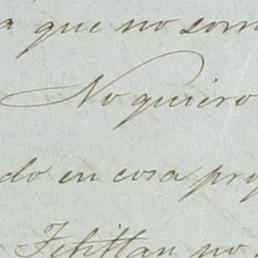 a que no som
No quiero
do en cosa pro
Tetitlan no